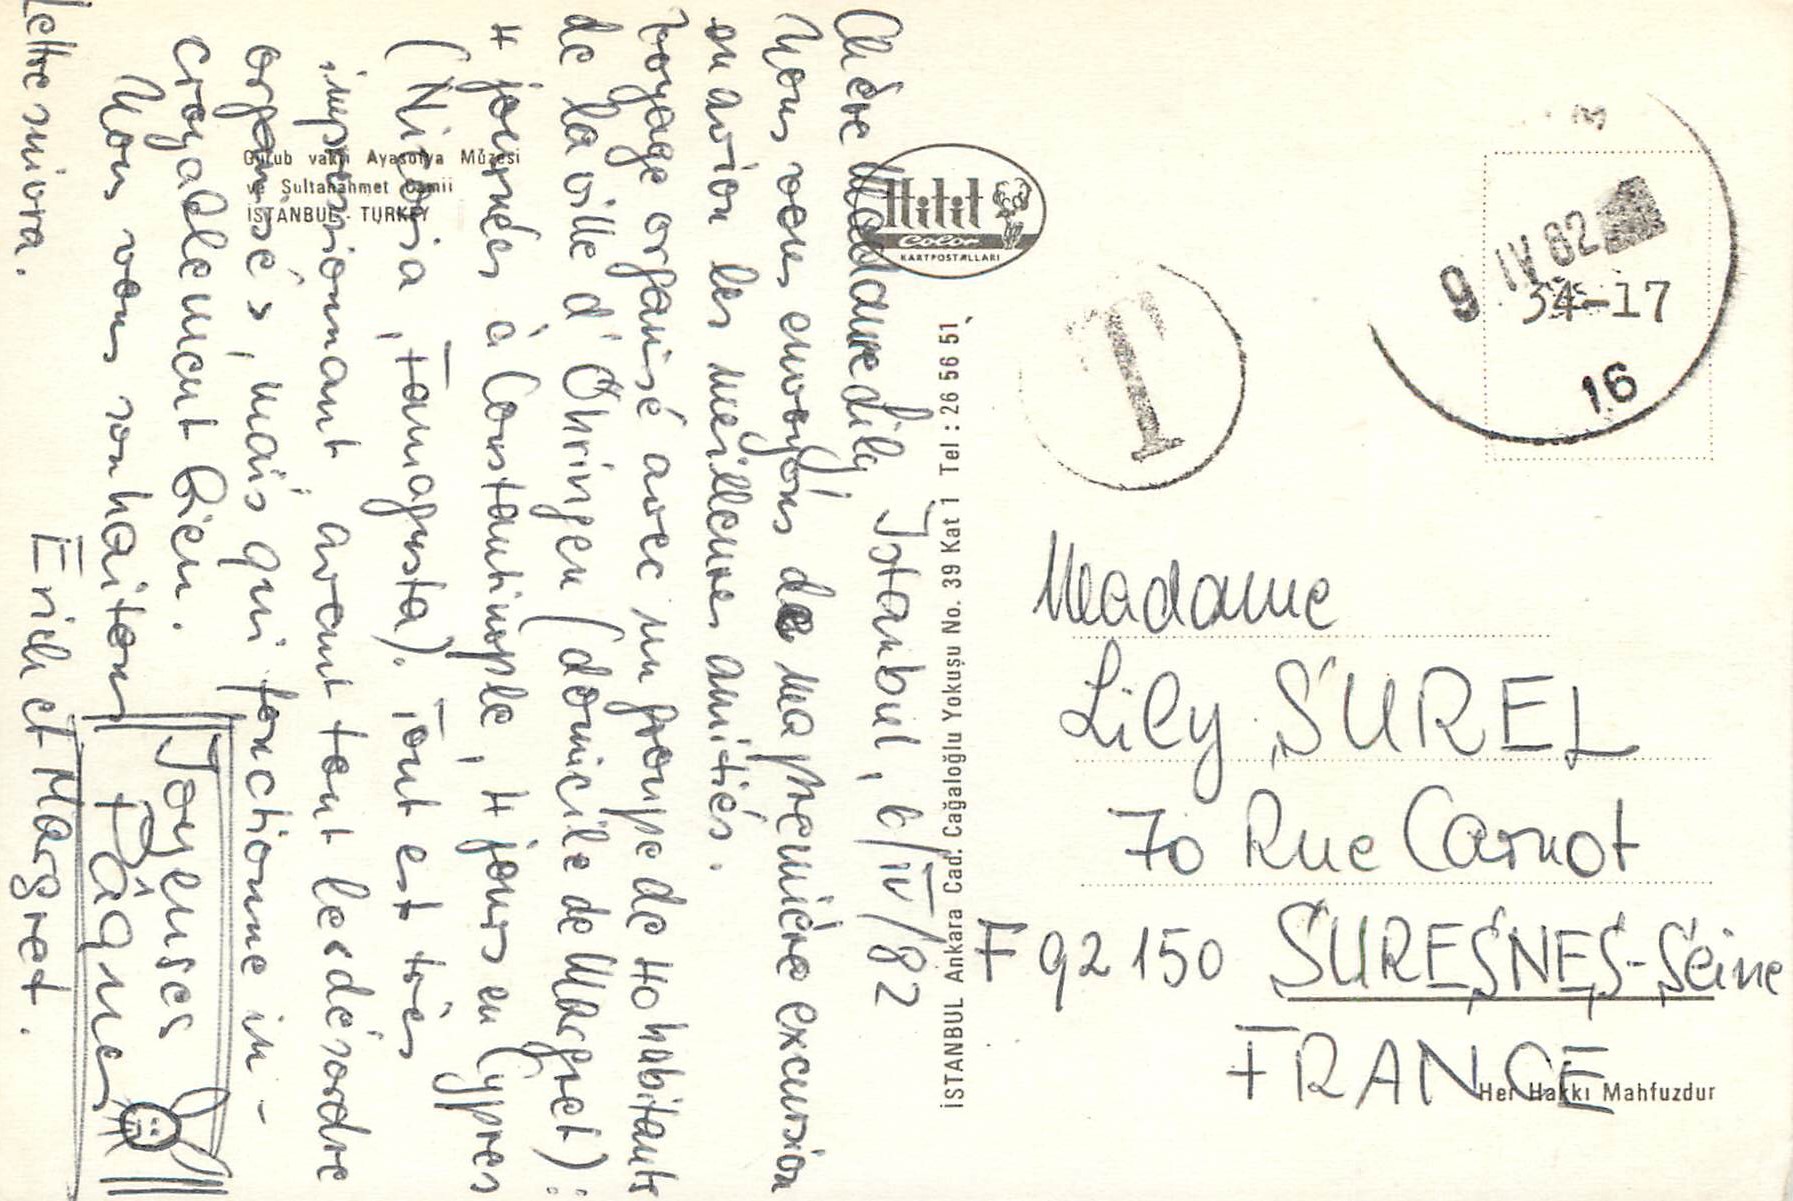 Istanbul, 6/IV/82
Chère Madame Lily
Nous vous envoyons de ma première excursion
en avion les meilleures amitiés.
voyage organisé avec un groupe de 40 habitants
de la ville d'Öhringen (domicile de Margret):
4 journées à Constantinople, 4 jours en Cypres
(Nicosia, Famagusta). Tout est très
impressionnant, avant tout les désordre
organisés, mais qui fonctionne in-
croyablement bien.
Nous vous souhaitons
Joyeuses
Pâques
Lettre suivra.
Erich et Margret.
Gurub vakti Ayasofya Müzesi
ve Sultanahmet Camii
İSTANBUL - TURKEY
Hitit
Color
KARTPOSTALLARI
İSTANBUL Ankara Cad. Cağaloğlu Yokuşu No. 39 Kat 1 Tel : 26 56 51
T
9 IV 82
34-17
16
Madame
Lily SUREL
70 Rue Carnot
F 92150 SURESNES-Seine
FRANCE
Her Hakkı Mahfuzdur